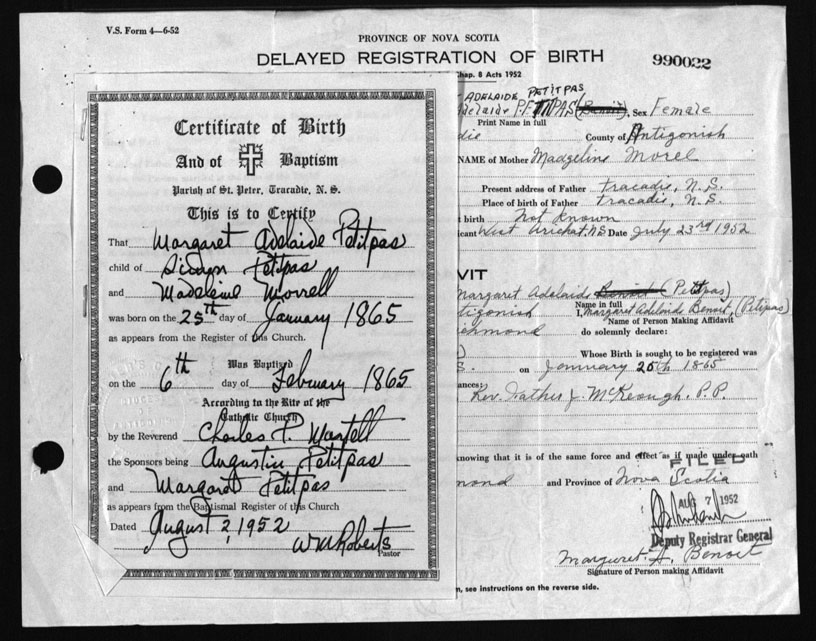 V.S. Form 4—6-52
PROVINCE OF NOVA SCOTIA
DELAYED REGISTRATION OF BIRTH
990022
Chap. 8 Acts 1952
Certificate of Birth
And of Baptism
Parish of St. Peter, Tracadie, N. S.
This is to Certify
That Margaret Adelaide Petitpas
child of Petitpas
and Madeleine Morrell
was born on the 25th day of January 1865
as appears from the Register of this Church.
Was Baptized
on the 6th day of February 1865
According to the Rite of the
Catholic Church
by the Reverend Charles P. Martell
the Sponsors being Augustin Petitpas
and Margaret Petitpas
as appears from the Baptismal Register of this Church
Dated August 2, 1952
Wm Roberts
Pastor
ADELAIDE PETITPAS
Adelaide (Benoit) Sex Female
Print Name in full
die County of Antigonish
NAME of Mother Madgeline Morel
Present address of Father Tracadie, N.S.
Place of birth of Father Tracadie, N.S.
t birth Not Known
icant West Arichat, NS Date July 23rd 1952
VIT
Margaret Adelaide Benoit (Petitpas)
Name in full
tigonish I, Margaret Adelaide Benoit, (Petitpas)
Name of Person Making Affidavit
chmond do solemnly declare:
Whose Birth is sought to be registered was
S. on January 25th 1865
ances:
Rev. Father J. McKeough, P.P.
nowing that it is of the same force and effect as if made under oath
mond and Province of Nova Scotia
FILED
AUG 7 1952
Deputy Registrar General
Margaret A. Benoit
Signature of Person making Affidavit
n, see instructions on the reverse side.